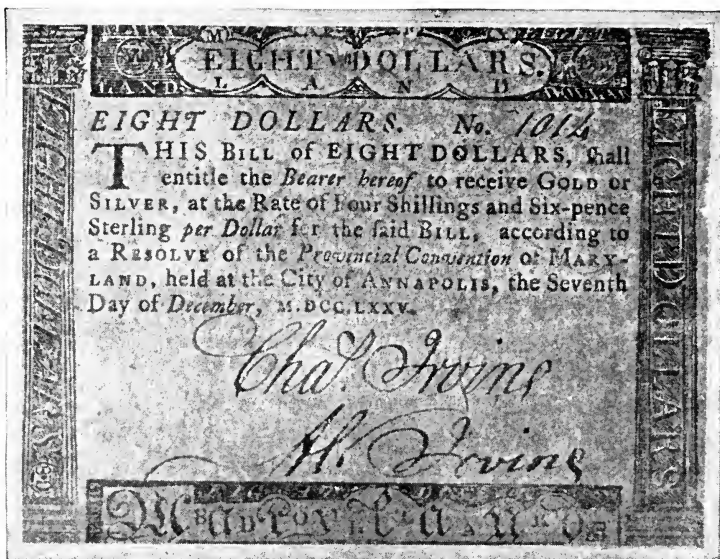 EIGHT DOLLARS.
LAND
L A N D
EIGHT DOLLARS. No. 1014
THIS BILL of EIGHT DOLLARS, ſhall
entitle the Bearer hereof to receive GOLD or
SILVER, at the Rate of Four Shillings and Six-pence
Sterling per Dollar for the ſaid BILL, according to
a RESOLVE of the Provincial Convention of MARY-
LAND, held at the City of ANNAPOLIS, the Seventh
Day of December, M.DCC.LXXV.
Chas. Irving
Irving
EIGHT DOLLARS
EIGHT DOLLARS